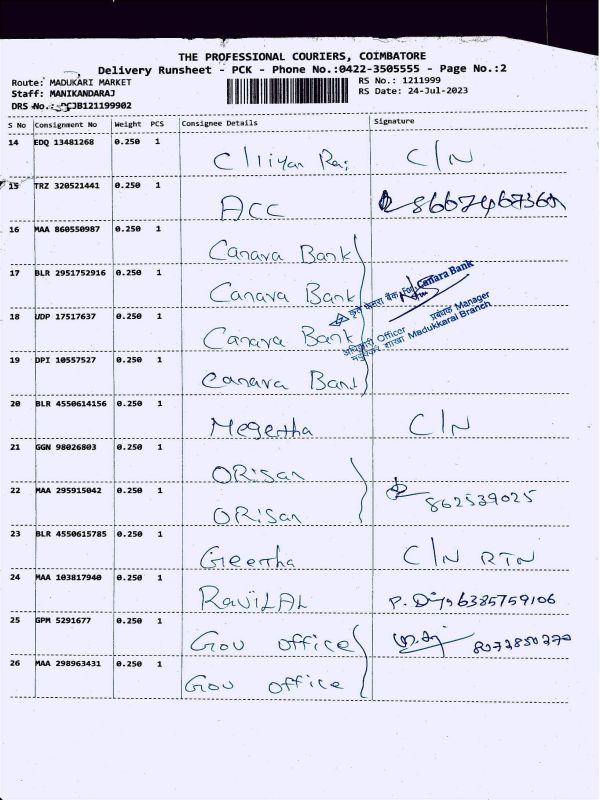 THE PROFESSIONAL COURIERS, COIMBATORE
Delivery Runsheet - PCK - Phone No.:0422-3505555 - Page No.:2
Route: MADUKARI MARKET
RS No.: 1211999
Staff: MANIKANDARAJ
RS Date: 24-Jul-2023
DRS No.: PCJB121199902
S No Consignment No Weight PCS Consignee Details Signature
14 EDQ 13481268 0.250 1 C/N
15 TRZ 320521441 0.250 1 ACC
16 MAA 860550987 0.250 1 Canara Bank
17 BLR 2951752916 0.250 1 Canara Bank
कृते केनरा बैंक For Canara Bank
18 UDP 17517637 0.250 1 Canara Bank
अधिकारी Officer प्रबंधक Manager
शाखा Madukkarai Branch
19 DPI 10557527 0.250 1 Canara Bank
20 BLR 4550614156 0.250 1 C/N
21 GGN 98026803 0.250 1 ORiSan
22 MAA 295915042 0.250 1 ORiSan 862539025
23 BLR 4550615785 0.250 1 Geertha C/N RTN
24 MAA 103817940 0.250 1 RaviLAL 6385759106
25 GPM 5291677 0.250 1 Gov office 8072850270
26 MAA 298963431 0.250 1 Gov office